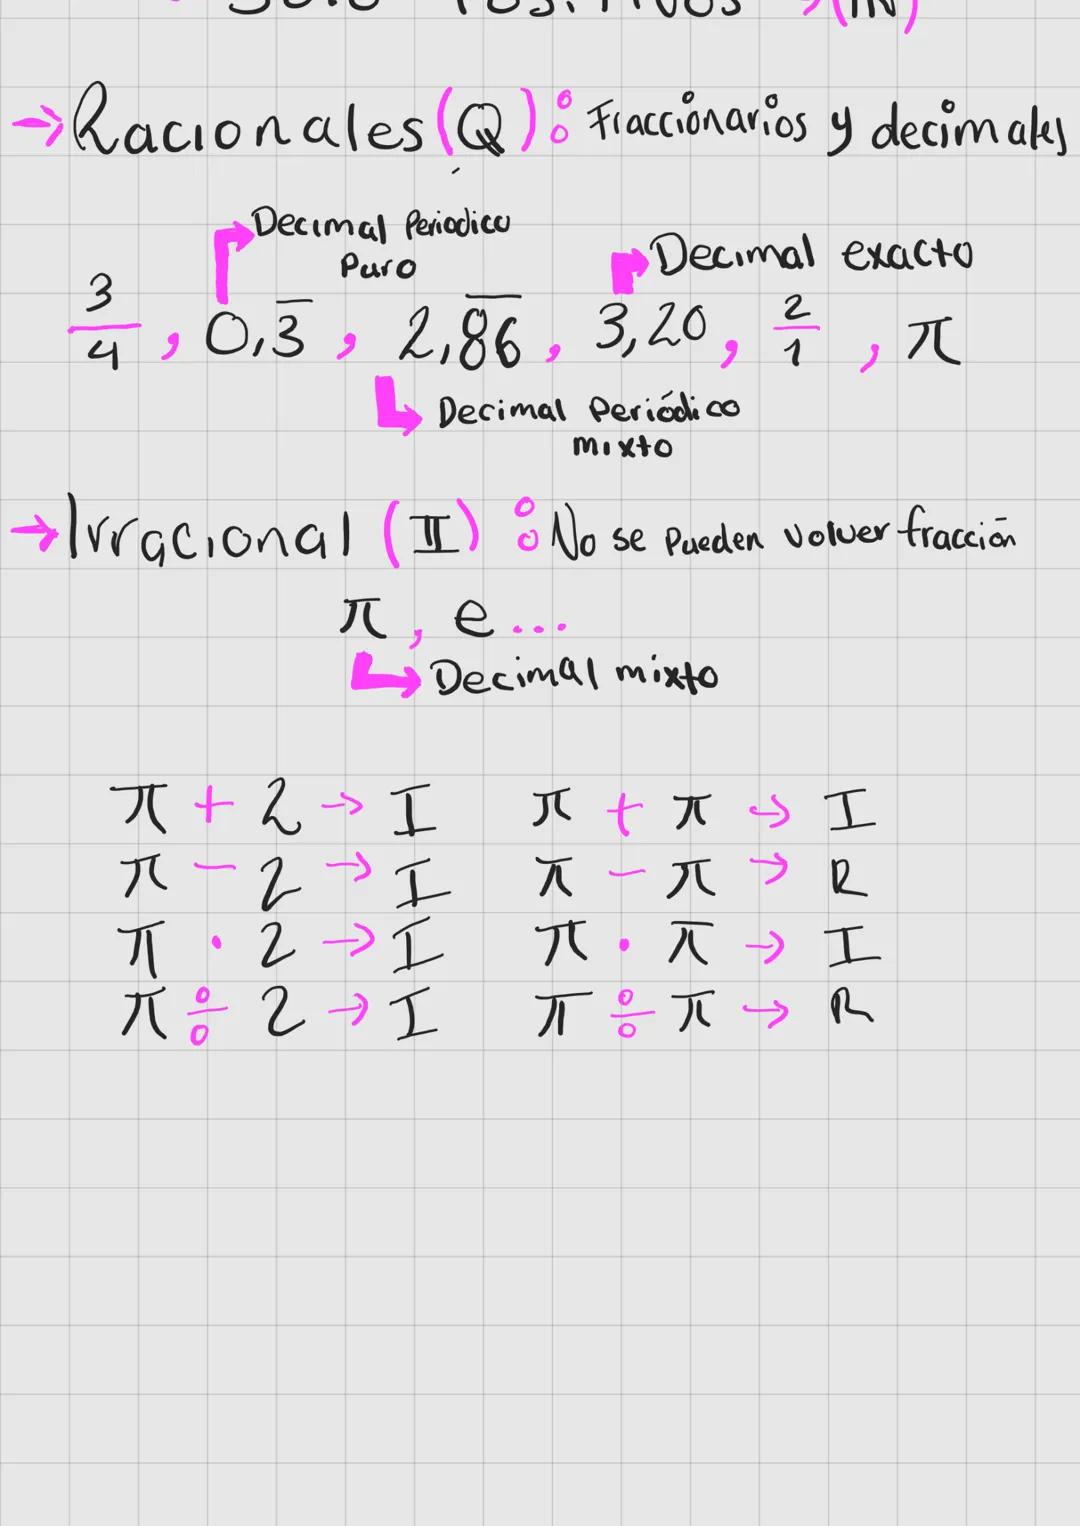 Solo Positivos → (IN)
→ Racionales (Q): Fraccionarios y decimales
Decimal Periodico
Puro
Decimal exacto
3/4, 0,3̅, 2,8̅6̅, 3,20, 2/1, π
Decimal Periódico
mixto
→ Irracional (II): No se Pueden volver fracción
π, e...
Decimal mixto
π + 2 → I π + π → I
π - 2 → I π - π → R
π · 2 → I π · π → I
π ÷ 2 → I π ÷ π → R